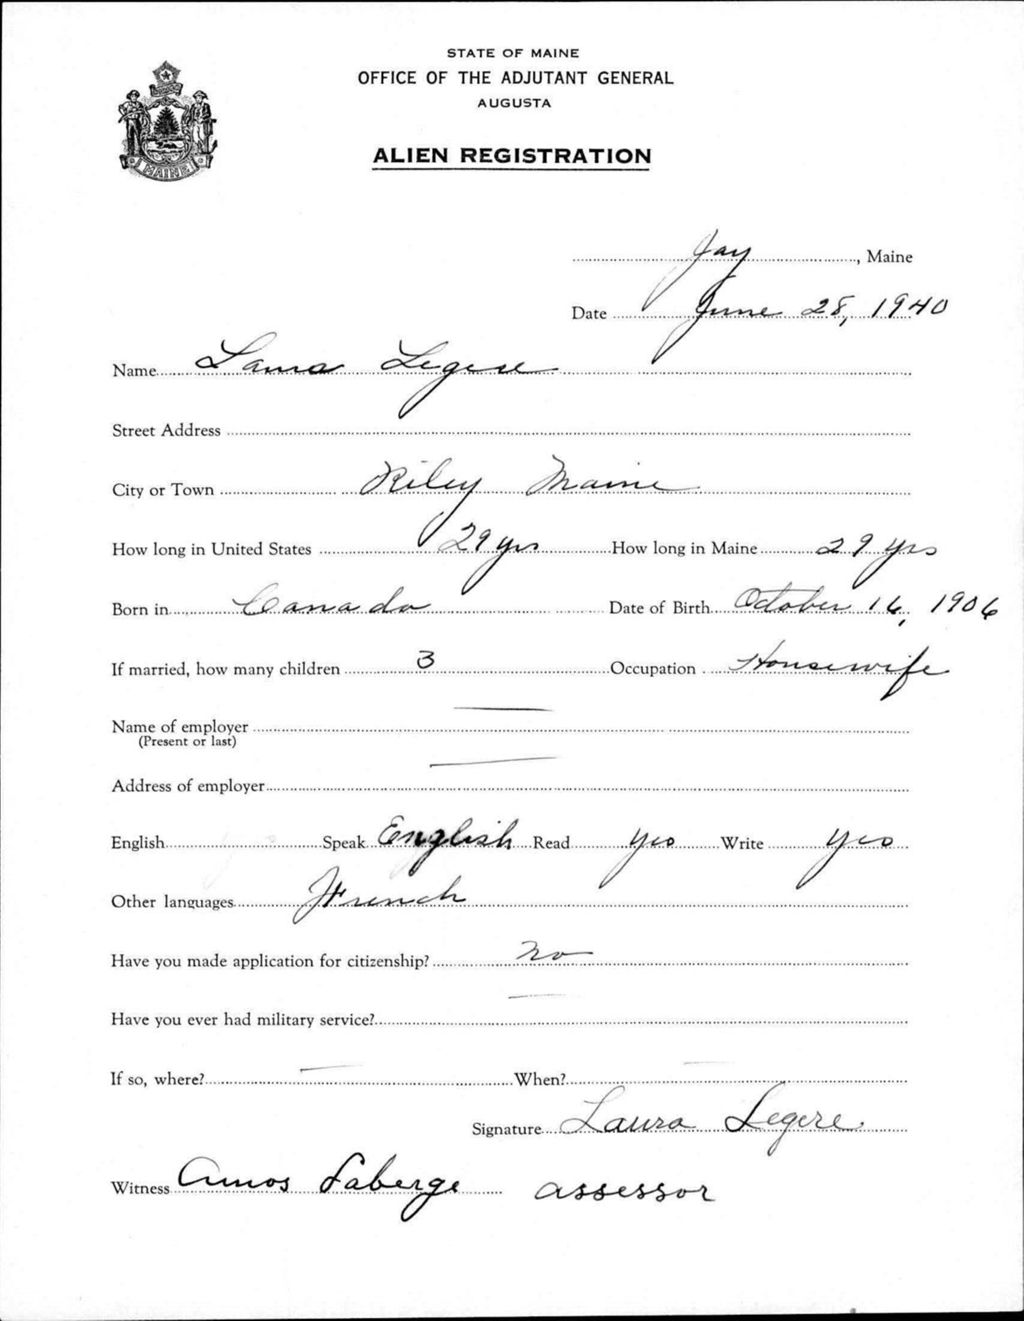 STATE OF MAINE
OFFICE OF THE ADJUTANT GENERAL
AUGUSTA
ALIEN REGISTRATION
MAINE
Jay, Maine
Date June 28, 1940
Name Laura Legere
Street Address
City or Town Riley Maine
How long in United States 29 yrs How long in Maine 29 yrs
Born in Canada Date of Birth October 16, 1906
If married, how many children 3 Occupation Housewife
Name of employer —
(Present or last)
Address of employer —
English Speak English Read yes Write yes
Other languages French
Have you made application for citizenship? No
Have you ever had military service? —
If so, where? — When? —
Signature Laura Legere
Witness Amos Laberge assessor